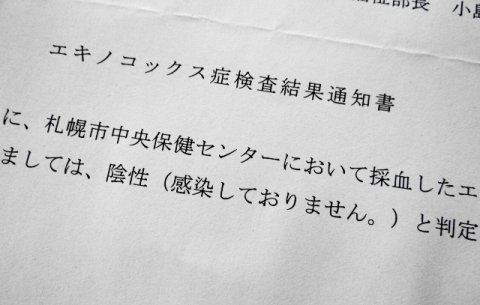 祉部長 小島
エキノコックス症検査結果通知書
に、札幌市中央保健センターにおいて採血したエ
ましては、陰性（感染しておりません。）と判定